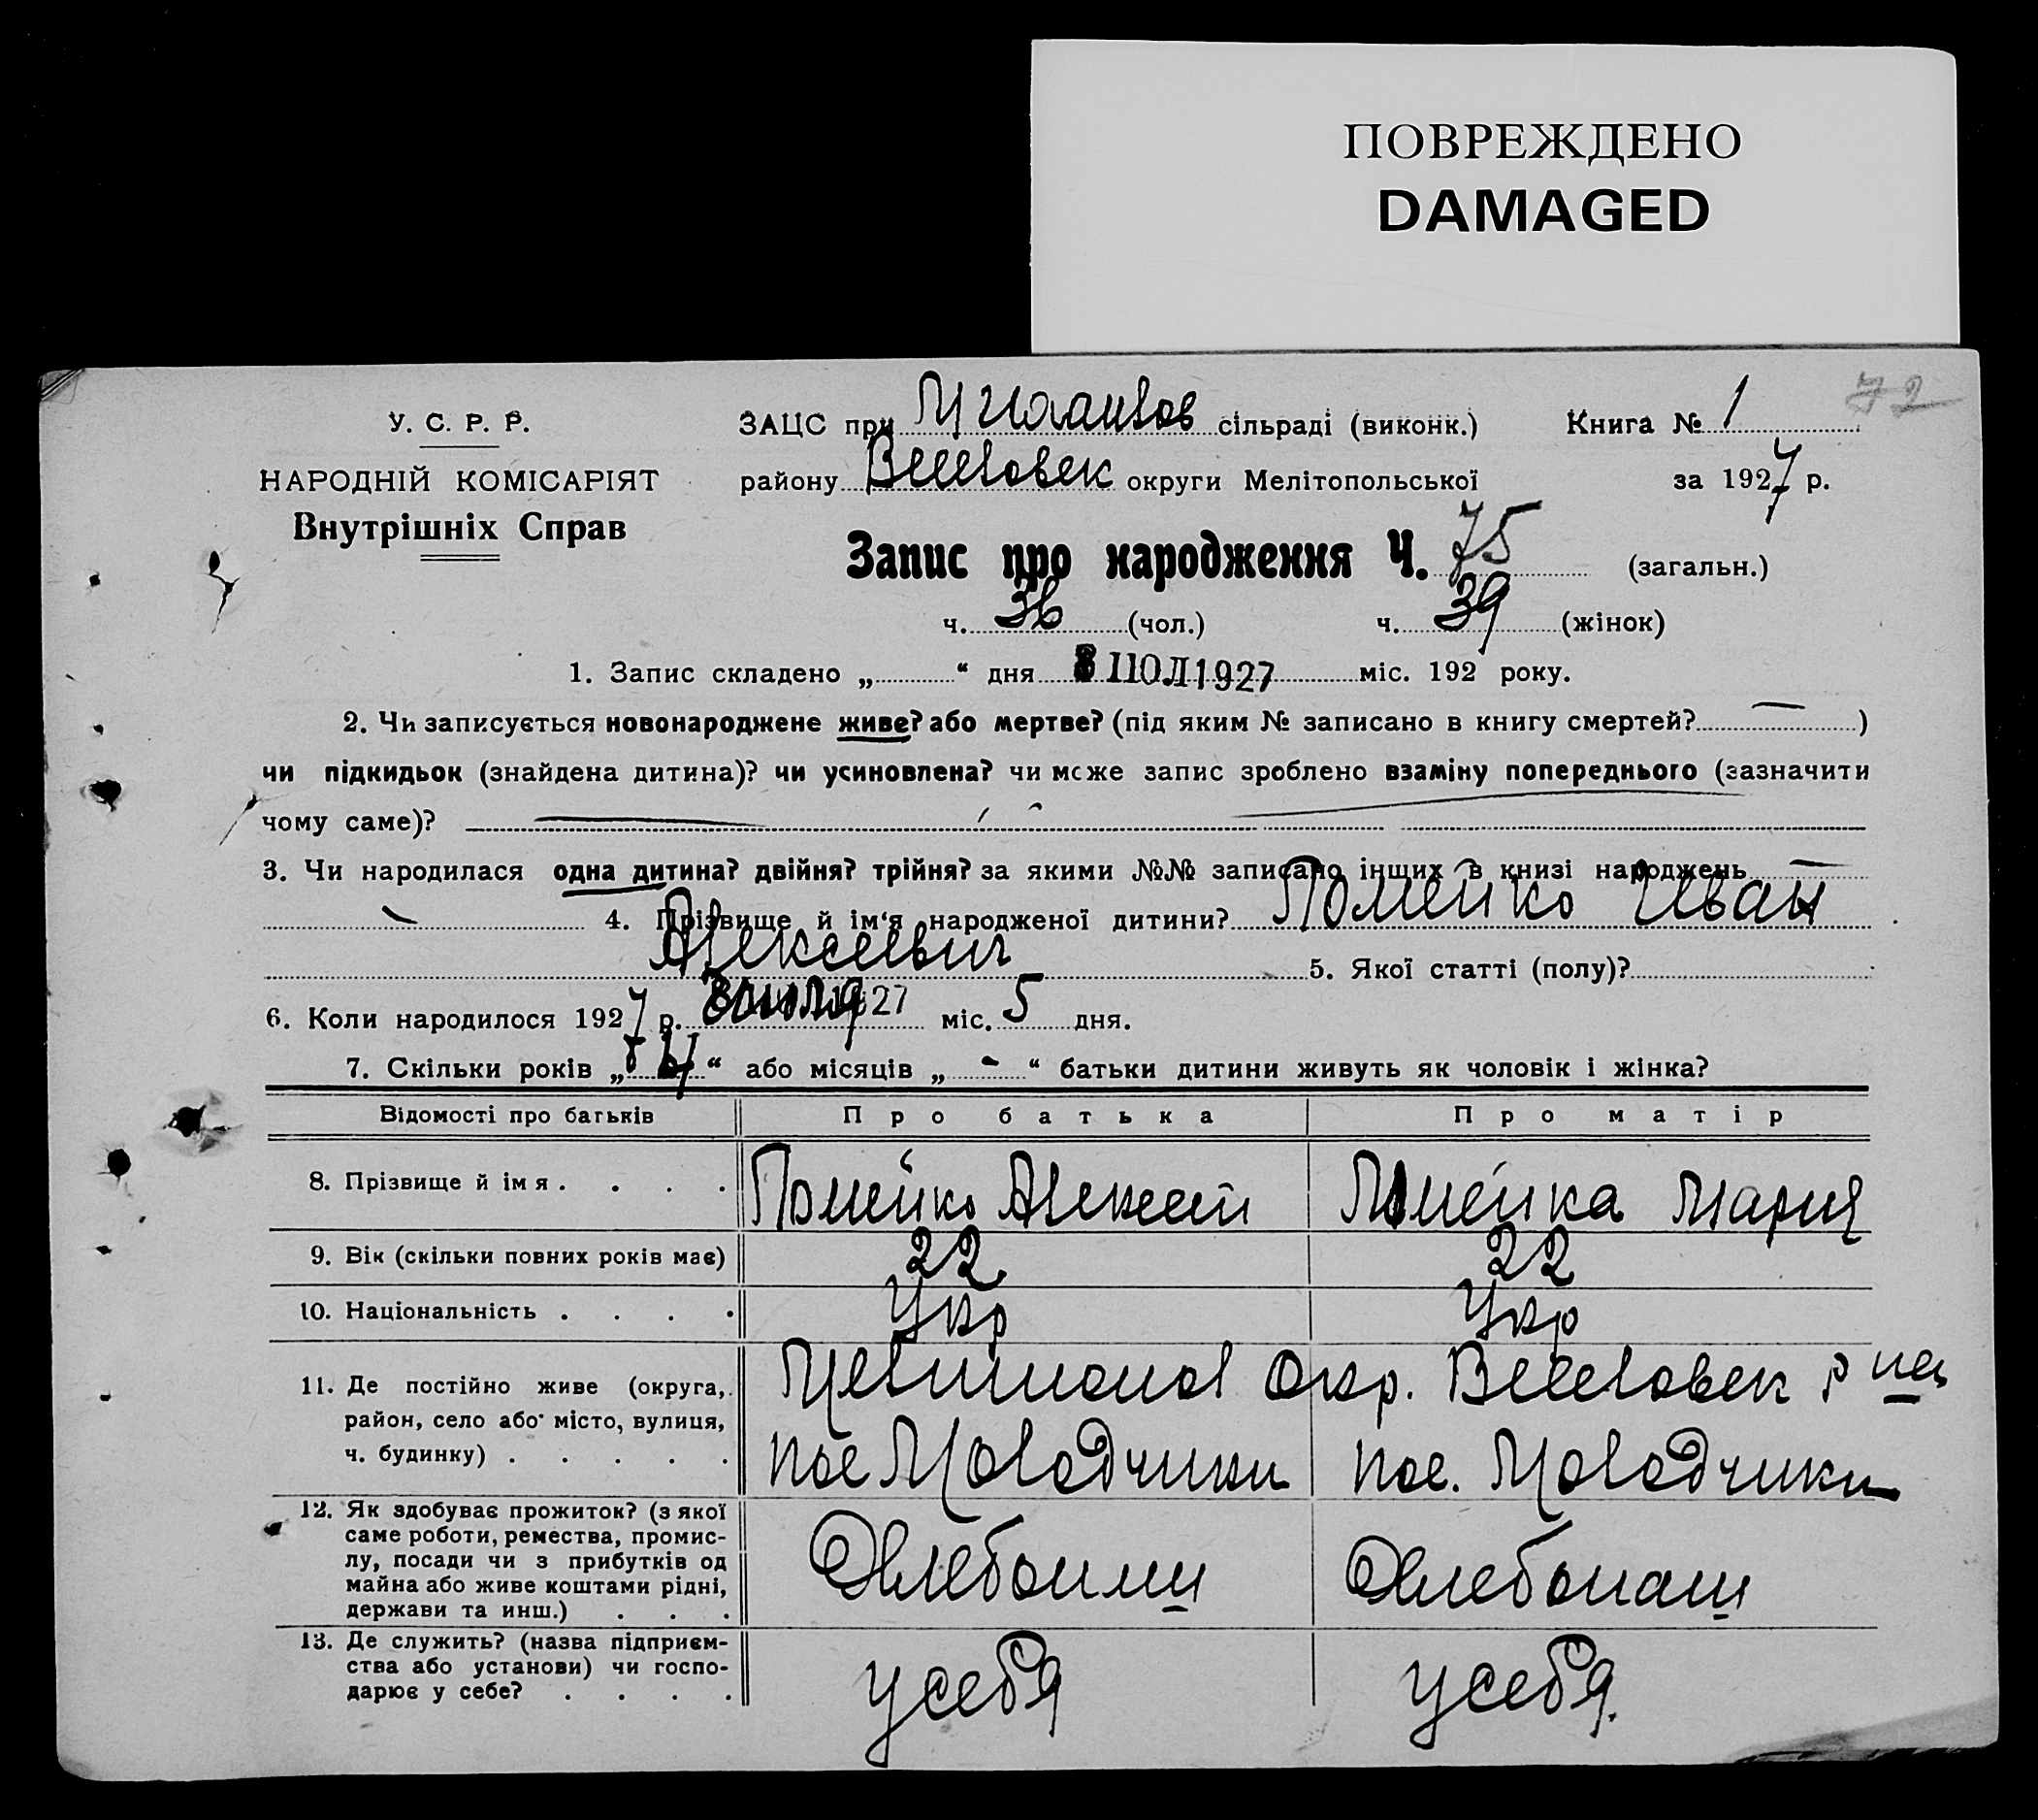 ПОВРЕЖДЕНО
DAMAGED
72
У. С. Р. Р.
НАРОДНІЙ КОМІСАРІЯТ
Внутрішніх Справ
ЗАЦС при сільраді (виконк.) Книга № 1
району Веселовск округи Мелітопольської за 1927 р.
Запис про народження Ч. 75 (загальн.)
ч. 36 (чол.) ч. 39 (жінок)
1. Запис складено „ “ дня 8 ИЮЛ 1927 міс. 192 року.
2. Чи записується новонароджене живе? або мертве? (під яким № записано в книгу смертей? — )
чи підкидьок (знайдена дитина)? чи усиновлена? чи може запис зроблено взаміну попереднього (зазначити
чому саме)?
3. Чи народилася одна дитина? двійня? трійня? за якими №№ записано інших в книзі народжень —
— 4. Прізвище й ім‘я народженої дитини? Помейко Иван
Алексеевич 5. Якої статті (полу)?
6. Коли народилося 1927 р. июля 27 міс. 5 дня.
7. Скільки років „ 4 “ або місяців „ - “ батьки дитини живуть як чоловік і жінка?
Відомості про батьків Про батька Про матір
8. Прізвище й імя . . . . Помейко Алексей Помейка Мария
9. Вік (скільки повних років має) 22 22
10. Національність . . . . Укр Укр
11. Де постійно живе (округа, район, село або місто, вулиця, ч. будинку) . . . . .
Окр. Веселовск р на
пос Молодчики пос. Молодчики
12. Як здобуває прожиток? (з якої
саме роботи, ремества, промис-
лу, посади чи з прибутків од
майна або живе коштами рідні,
держави та инш.) . . .
Хлебопаш Хлебопаш
13. Де служить? (назва підприєм-
ства або установи) чи госпо-
дарює у себе? . . . .
у себя у себя.